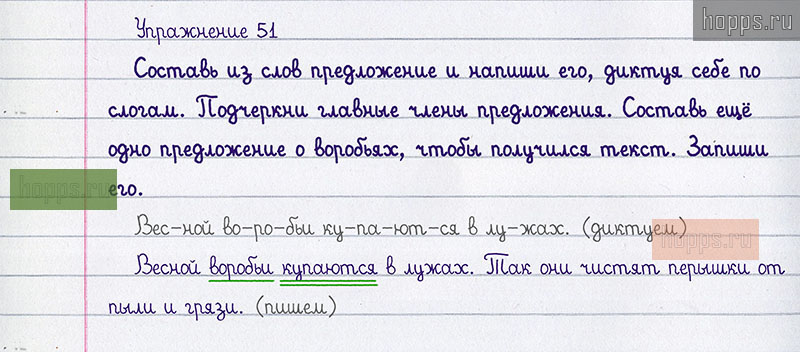 hopps.ru
Упражнение 51
Составь из слов предложение и напиши его, диктуя себе по
слогам. Подчеркни главные члены предложения. Составь ещё
одно предложение о воробьях, чтобы получился текст. Запиши
его.
hopps.ru
Вес-ной во-ро-бьи ку-па-ют-ся в лу-жах. (диктуем)
hopps.ru
Весной воробьи купаются в лужах. Так они чистят перышки от
пыли и грязи. (пишем)